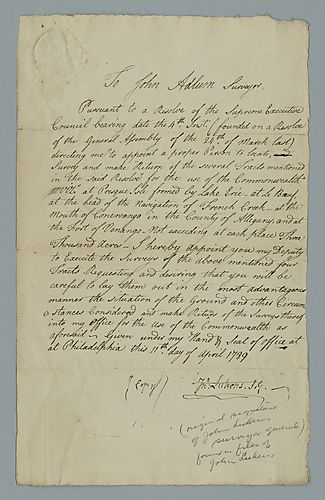 To John Adlum Surveyor
Pursuant to a Resolve of the Supreme Executive
Council bearing date the 9th Inst. (founded on a Resolve
of the General Assembly of the 28th of March last)
directing me to appoint a proper Person to locate,
Survey and make Return of the several Tracts mentioned
in the said Resolve for the use of the Commonwealth
at Presque Isle formed by Lake Erie at
at the head of the Navigation of French Creek at the
Mouth of Conewango in the County of Allegany, and at
the Fort of Venango. Not exceeding at each place Three
Thousand Acres I hereby appoint you my Deputy
to Execute the Surveys of the above mentioned four
Tracts Requesting and desiring that you will be
careful to lay them out in the most advantageous
manner the situation of the Ground and other Circum
stances Considered and make Return of the Surveys thereof
into my Office for the Use of the Commonwealth as
aforesaid Given under my Hand & Seal of office at
at Philadelphia this 11th day of April 1789
(Copy) Jno. Lukens, S.G.
(original signature
of John Lukens
surveyor general)
found in files of
John Lukens